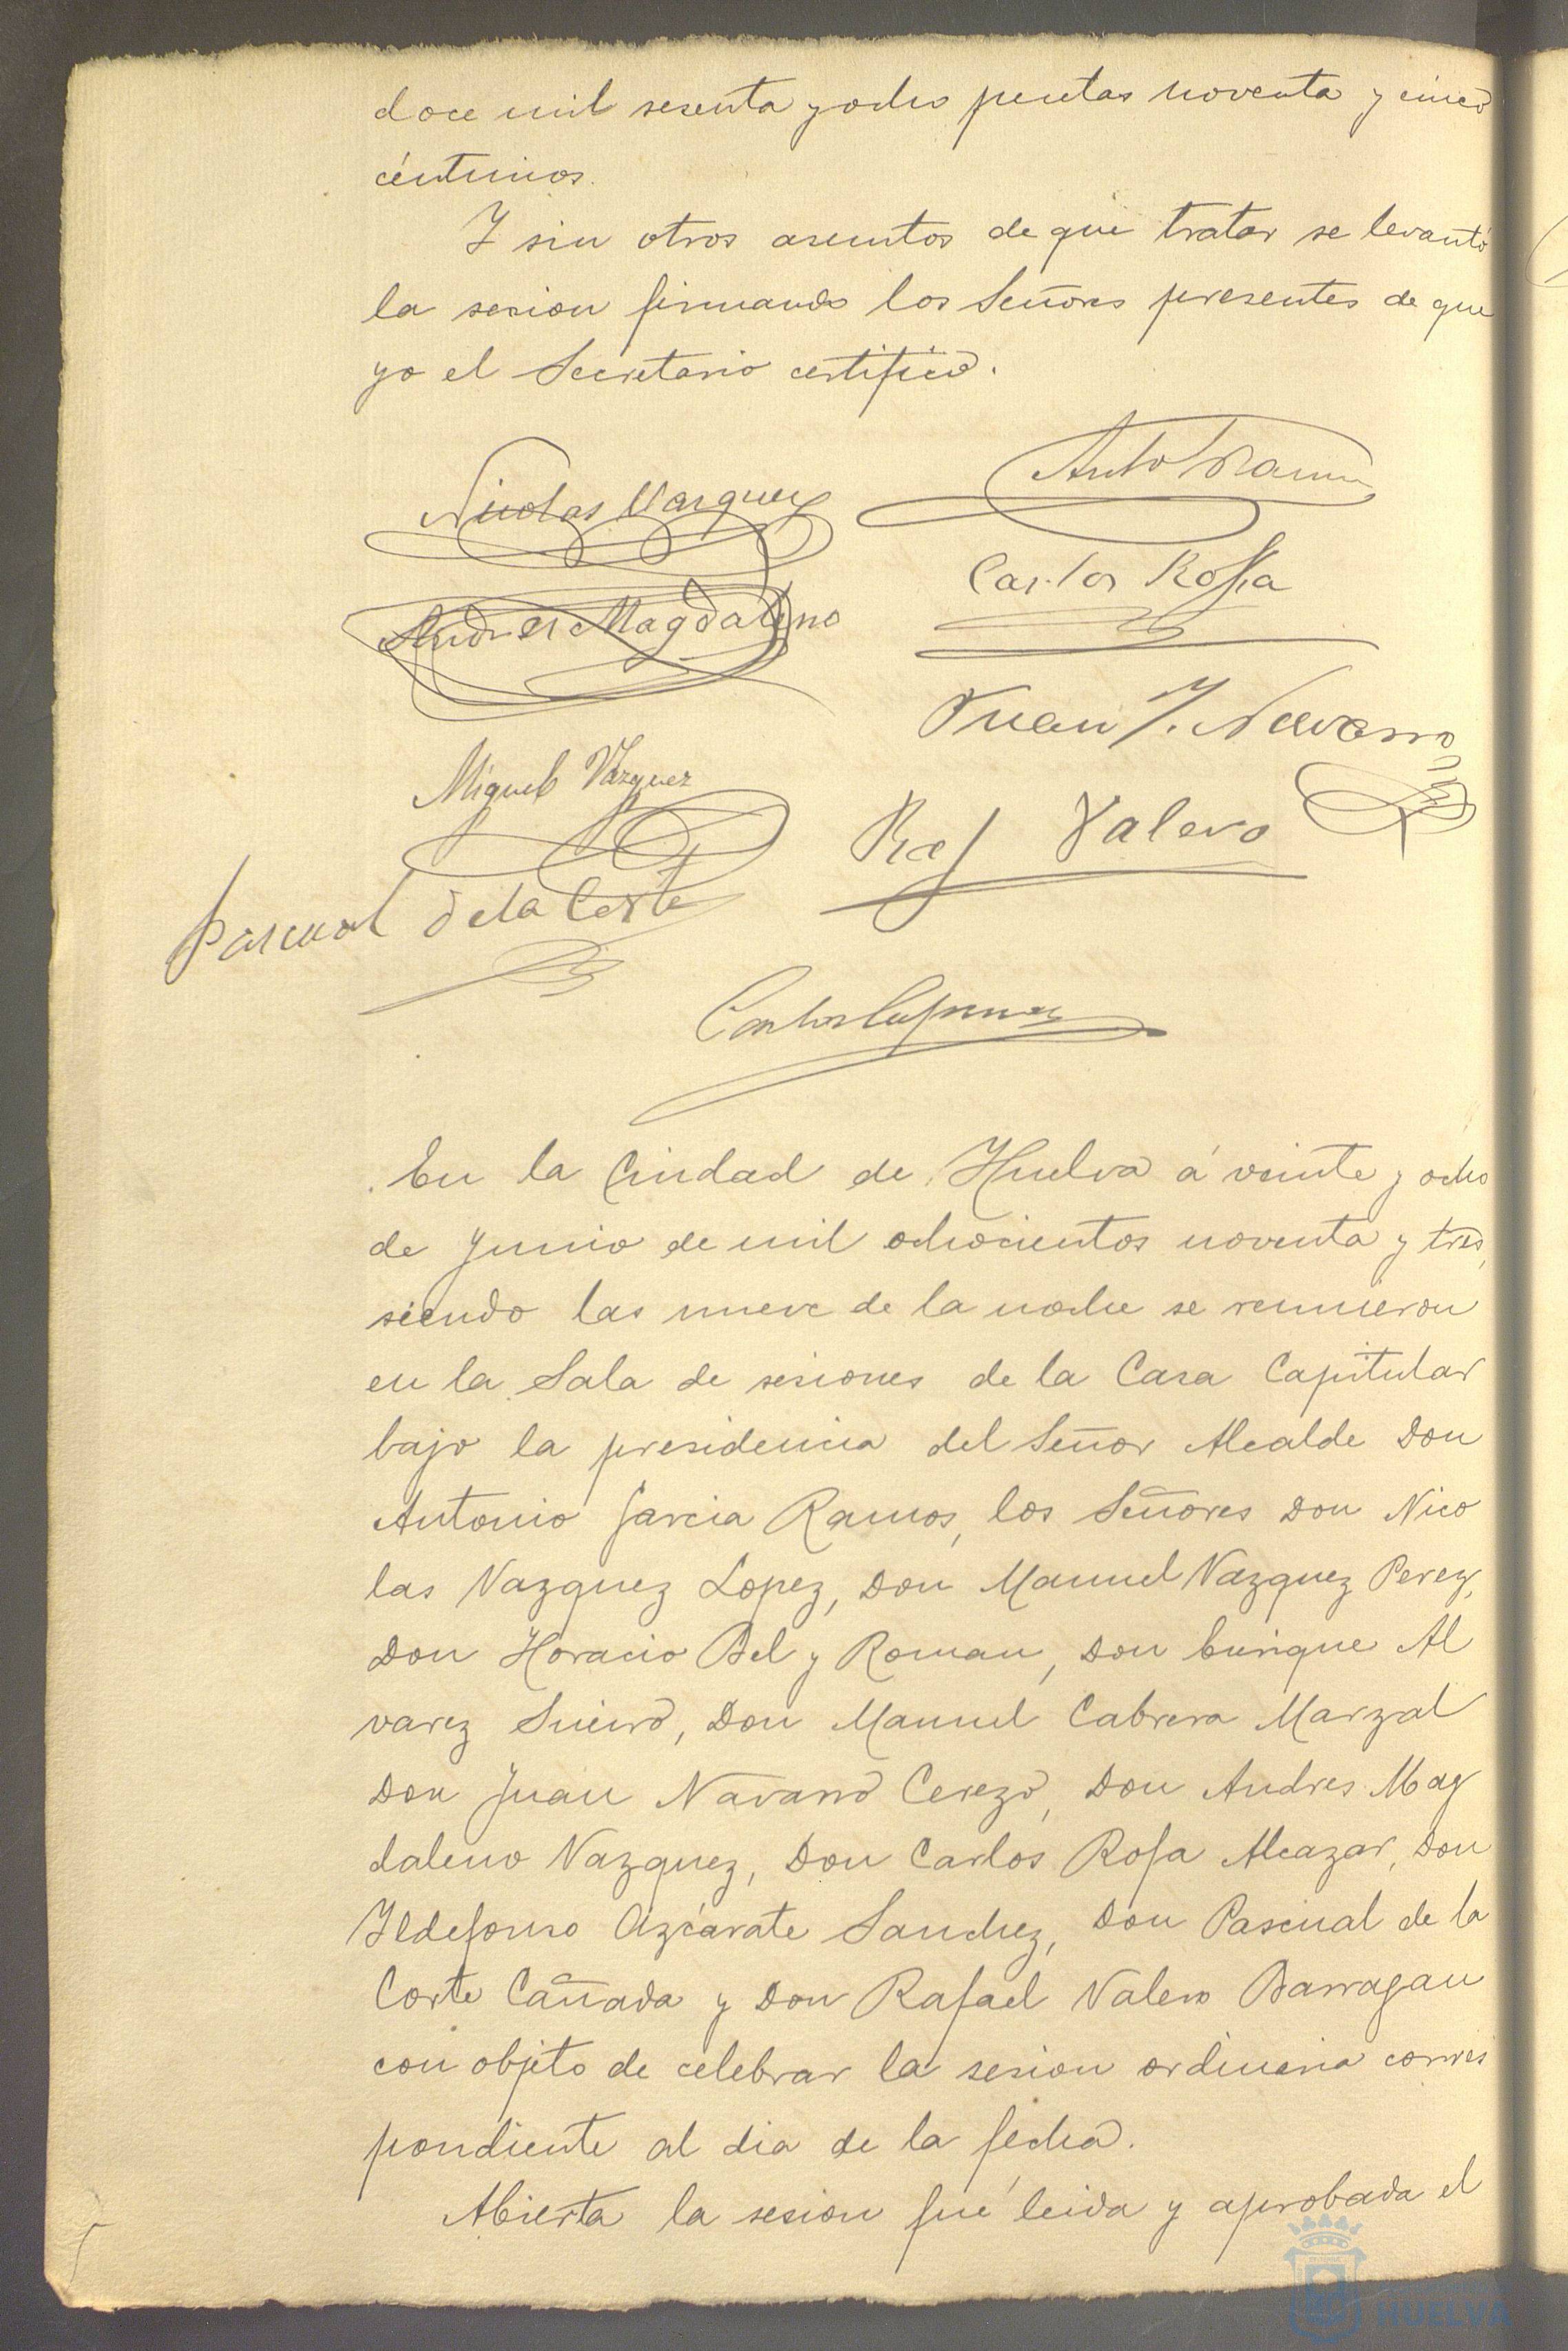 doce mil sesenta y ocho pesetas noventa y cinco
céntimos.
Y sin otros asuntos de que tratar se levantó
la sesion firmando los Señores presentes de que
yo el Secretario certifico.
Nicolas Vazquez
Anto Ramos
Carlos Rofa
Andres Magdaleno
Juan J. Navarro
Miguel Vazquez
Raf Valero
Pascual de la Corte
Carlos
En la Ciudad de Huelva á veinte y ocho
de Junio de mil ochocientos noventa y tres,
siendo las nueve de la noche se reunieron
en la Sala de sesiones de la Casa Capitular
bajo la presidencia del Señor Alcalde Don
Antonio Garcia Ramos, los Señores Don Nico
las Vazquez Lopez, Don Manuel Vazquez Perez,
Don Horacio Bel y Roman, Don Enrique Al
varez Sueiro, Don Manuel Cabrera Marzal
Don Juan Navarro Cerezo, Don Andres Mag
daleno Vazquez, Don Carlos Rofa Alcazar, Don
Ildefonso Azcárate Sanchez, Don Pascual de la
Corte Cañada y Don Rafael Valero Barragan
con objeto de celebrar la sesion ordinaria corres
pondiente al dia de la fecha.
Abierta la sesion fué leida y aprobada el
HUELVA